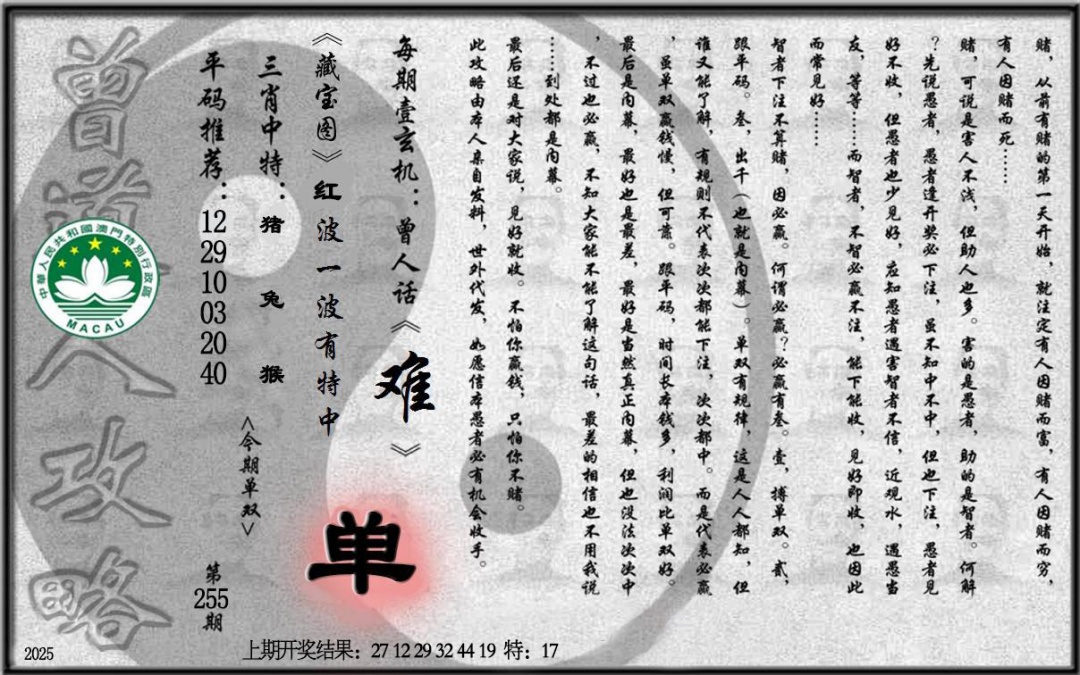 赌，从前有赌的第一天开始，就注定有人因赌而富，有人因赌而穷，
有人因赌而死……
赌，可说是害人不浅，但助人也多。害的是愚者，助的是智者。何解
？先说愚者，愚者逢开奖必下注，虽不知中不中，但也下注，愚者见
好不收，但愚者也少见好，应知愚者遇害智者不信，近观水，遇愚当
友，等等……而智者，不智必赢不注，能下能收，见好即收，也因此
而常见好……
智者下注不算赌，因必赢。何谓必赢？必赢有叁。壹，搏单双。贰，
跟平码。叁，出千（也就是内幕）。单双有规律，这是人人都知，但
谁又能了解，有规则不代表次次都能下注，次次都中。而是代表必赢
，虽单双赢钱慢，但可靠。跟平码，时间长本钱多，利润比单双好。
最后是内幕，最好也是最差，最好是当然真正内幕，但也没法次次中
，不过也必赢，不知大家能不能了解这句话，最差的相信也不用我说
……到处都是内幕。
最后还是对大家说，见好就收。不怕你赢钱，只怕你不赌。
此攻略由本人亲自发料，世外代发，如愿信本愚者必有机会收手。
每期壹玄机：曾人话《难》
《藏宝图》红波一波有特中
单
三肖中特：猪 兔 猴
<今期单双>
平码推荐：12 29 10 03 20 40
第255期
曾道人攻略
中華人民共和國澳門特別行政區
MACAU
2025
上期开奖结果：27 12 29 32 44 19 特：17